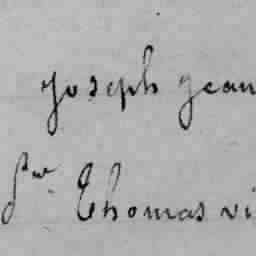 joseph jean
Thomas vi